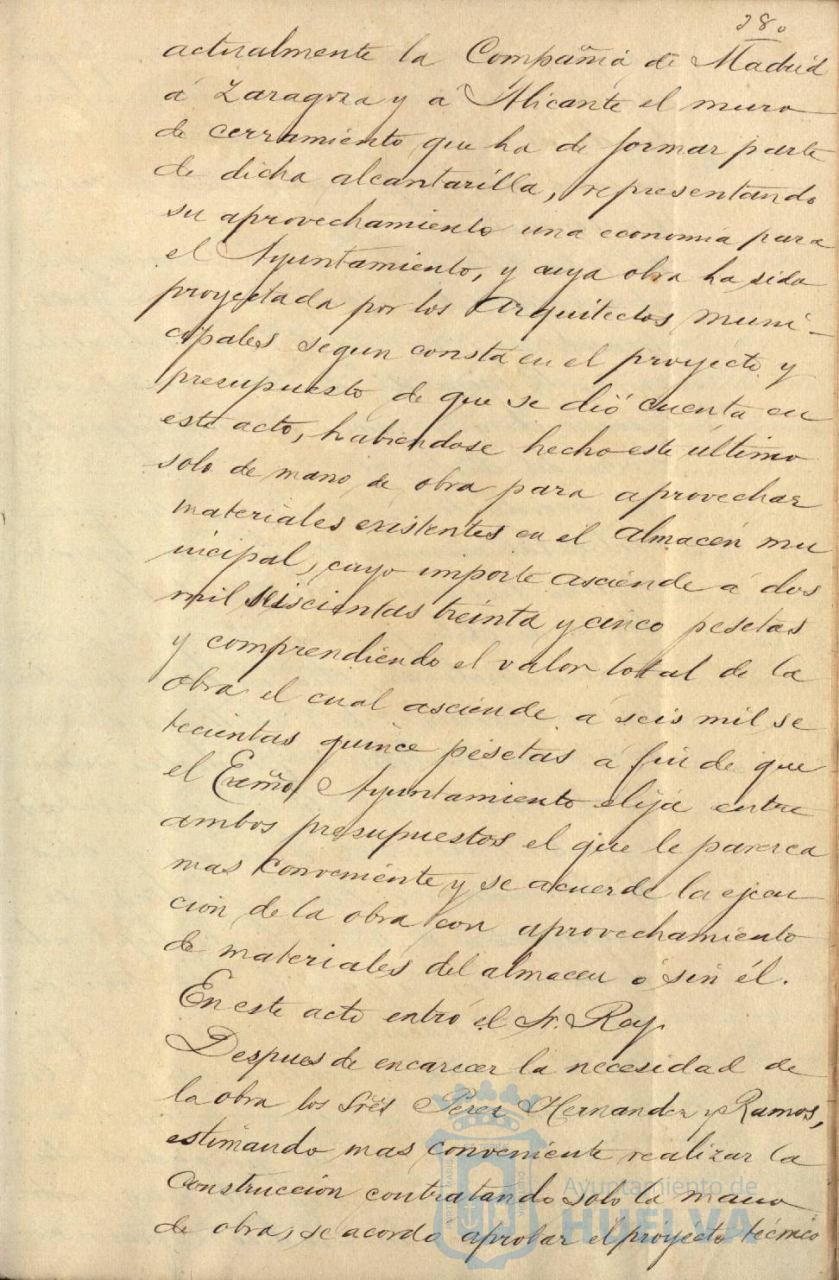 28.
actualmente la Compañia de Madrid
á Zaragoza y á Alicante el muro
de cerramiento que ha de formar parte
de dicha alcantarilla, representando
su aprovechamiento una economía para
el Ayuntamiento, y cuya obra ha sido
proyectada por los Arquitectos muni-
cipales segun consta en el proyecto y
presupuesto de que se dió cuenta en
este acto, habiendose hecho este último
solo de mano de obra para aprovechar
materiales existentes en el almacén mu
nicipal, cuyo importe asciende á dos
mil seiscientas treinta y cinco pesetas
y comprendiendo el valor total de la
obra el cual asciende á seis mil se
tecientas quince pesetas á fin de que
el Excmo Ayuntamiento elija entre
ambos presupuestos el que le parezca
mas conveniente y se acuerde la ejecu
cion de la obra con aprovechamiento
de materiales del almacen ó sin él.
En este acto entró el Sr. Rey.
Despues de encarecer la necesidad de
la obra los Srés Perez Hernandez y Ramos,
estimando mas conveniente realizar la
construccion contratando solo la mano
de obra, se acordo aprobar el proyecto técnico
Ayuntamiento de
HUELVA